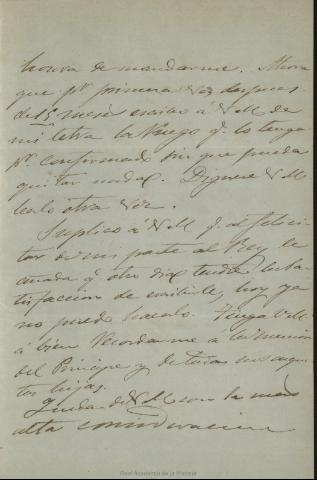 honra de mandarme. Ahora
que pr primera vez despues
de 15 meses escribo á V M de
mi letra la ruego q. lo tenga
pr confirmado sin que pueda
quitar nada. Dignese V M
leerlo otra vez.
Suplico á V M q. al felici-
tar de mi parte al Rey le
añada q. otro dia tendré la sa-
tisfaccion de escribirle, hoy ya
no puedo hacerlo. Tenga V. M.
á bien recordarme á la memoria
del Principe y de todas sus augus-
tas hijas.
Quedo de V M con la mas
alta consideracion
Real Academia de la Historia